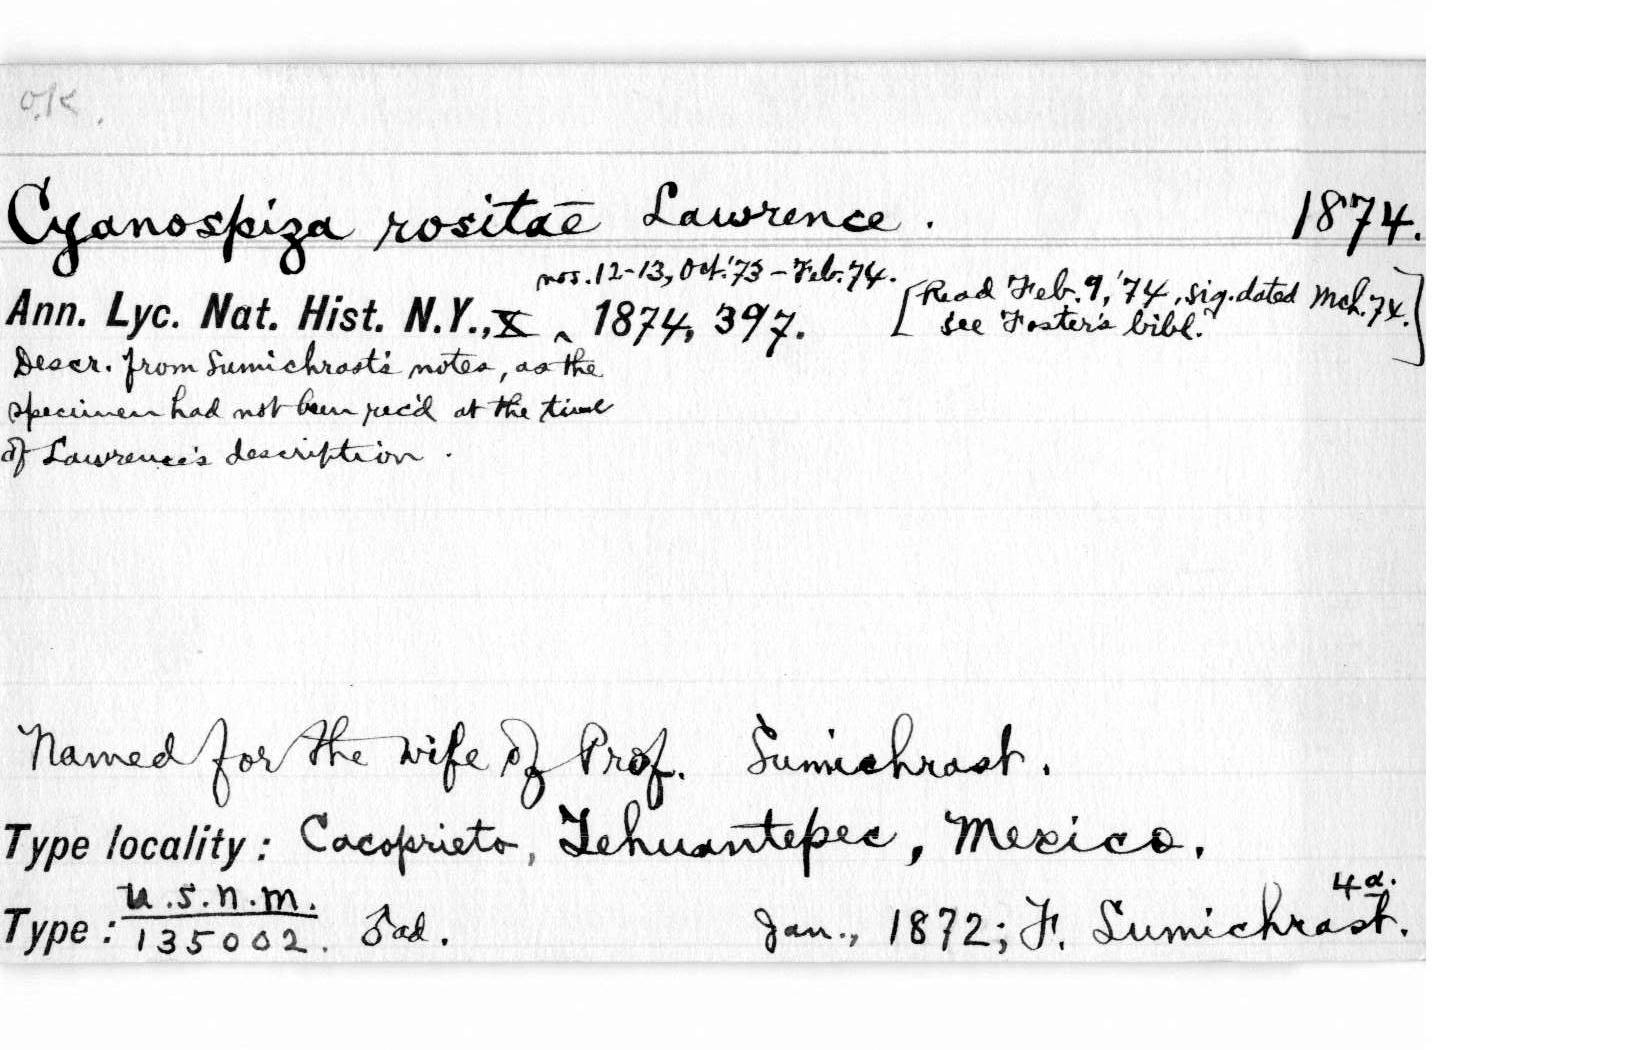 O.K.
Cyanospiza rositae Lawrence. 1874.
nos. 12-13, Oct. '73 - Feb. 74.
Ann. Lyc. Nat. Hist. N.Y., X ‸ 1874, 397. [Read Feb. 9, '74, sig. dated Mch. 74.
see Foster's bibl.]
Descr. from Sumichrast's notes, as the
specimen had not been rec'd at the time
of Lawrence's description.
Named for the wife of Prof. Sumichrast.
Type locality: Cacoprieto, Tehuantepec, Mexico.
4a.
Type: U.S.N.M. 135002. ♂ ad. Jan., 1872; F. Sumichrast.